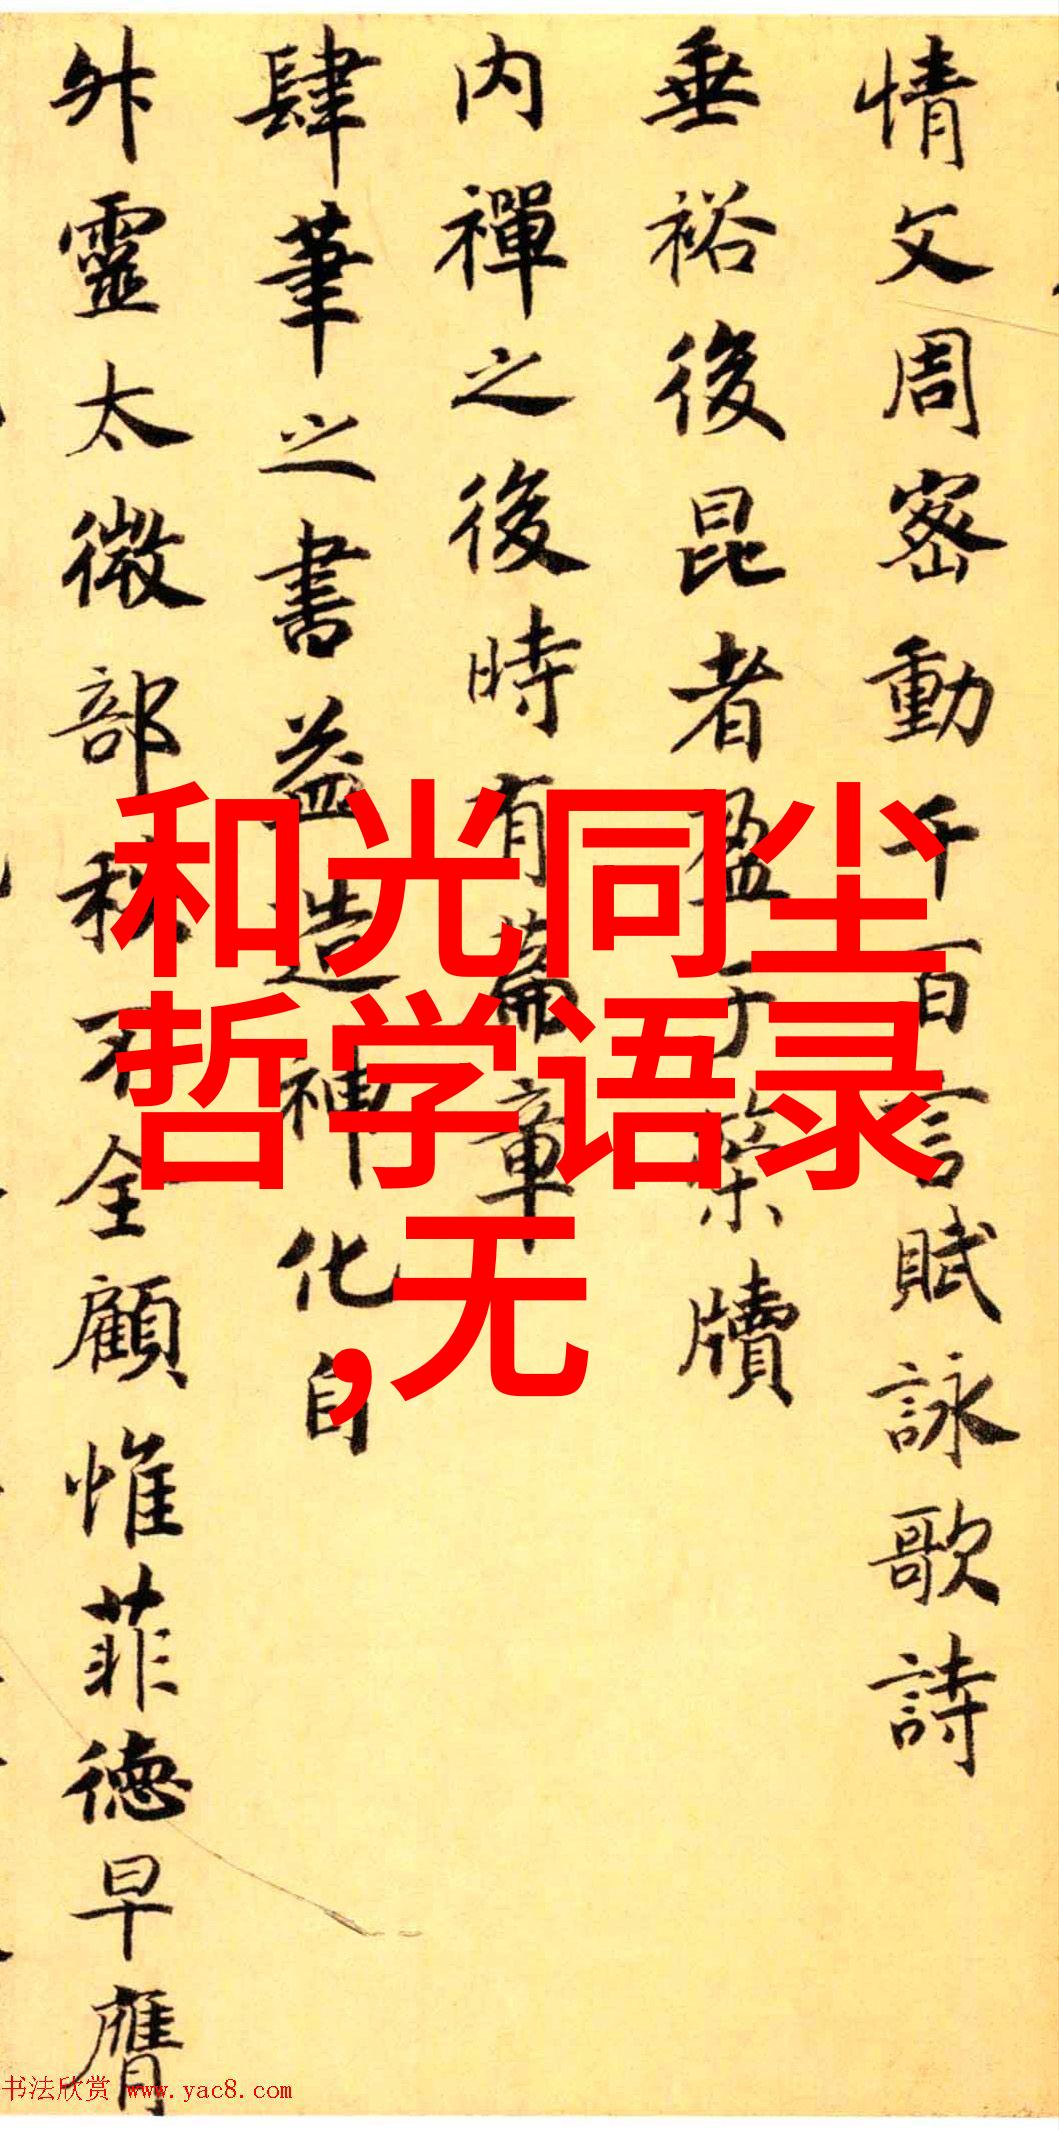 情文周密動千百言賦詠歌詩
垂裕後昆者盈于簡牘
内禪之後時有篇章
肆筆之書益造神化自
外靈太微部秩不全顧惟菲德早膺
和光同尘
哲学语录
,无
书法欣赏 www.yac8.com